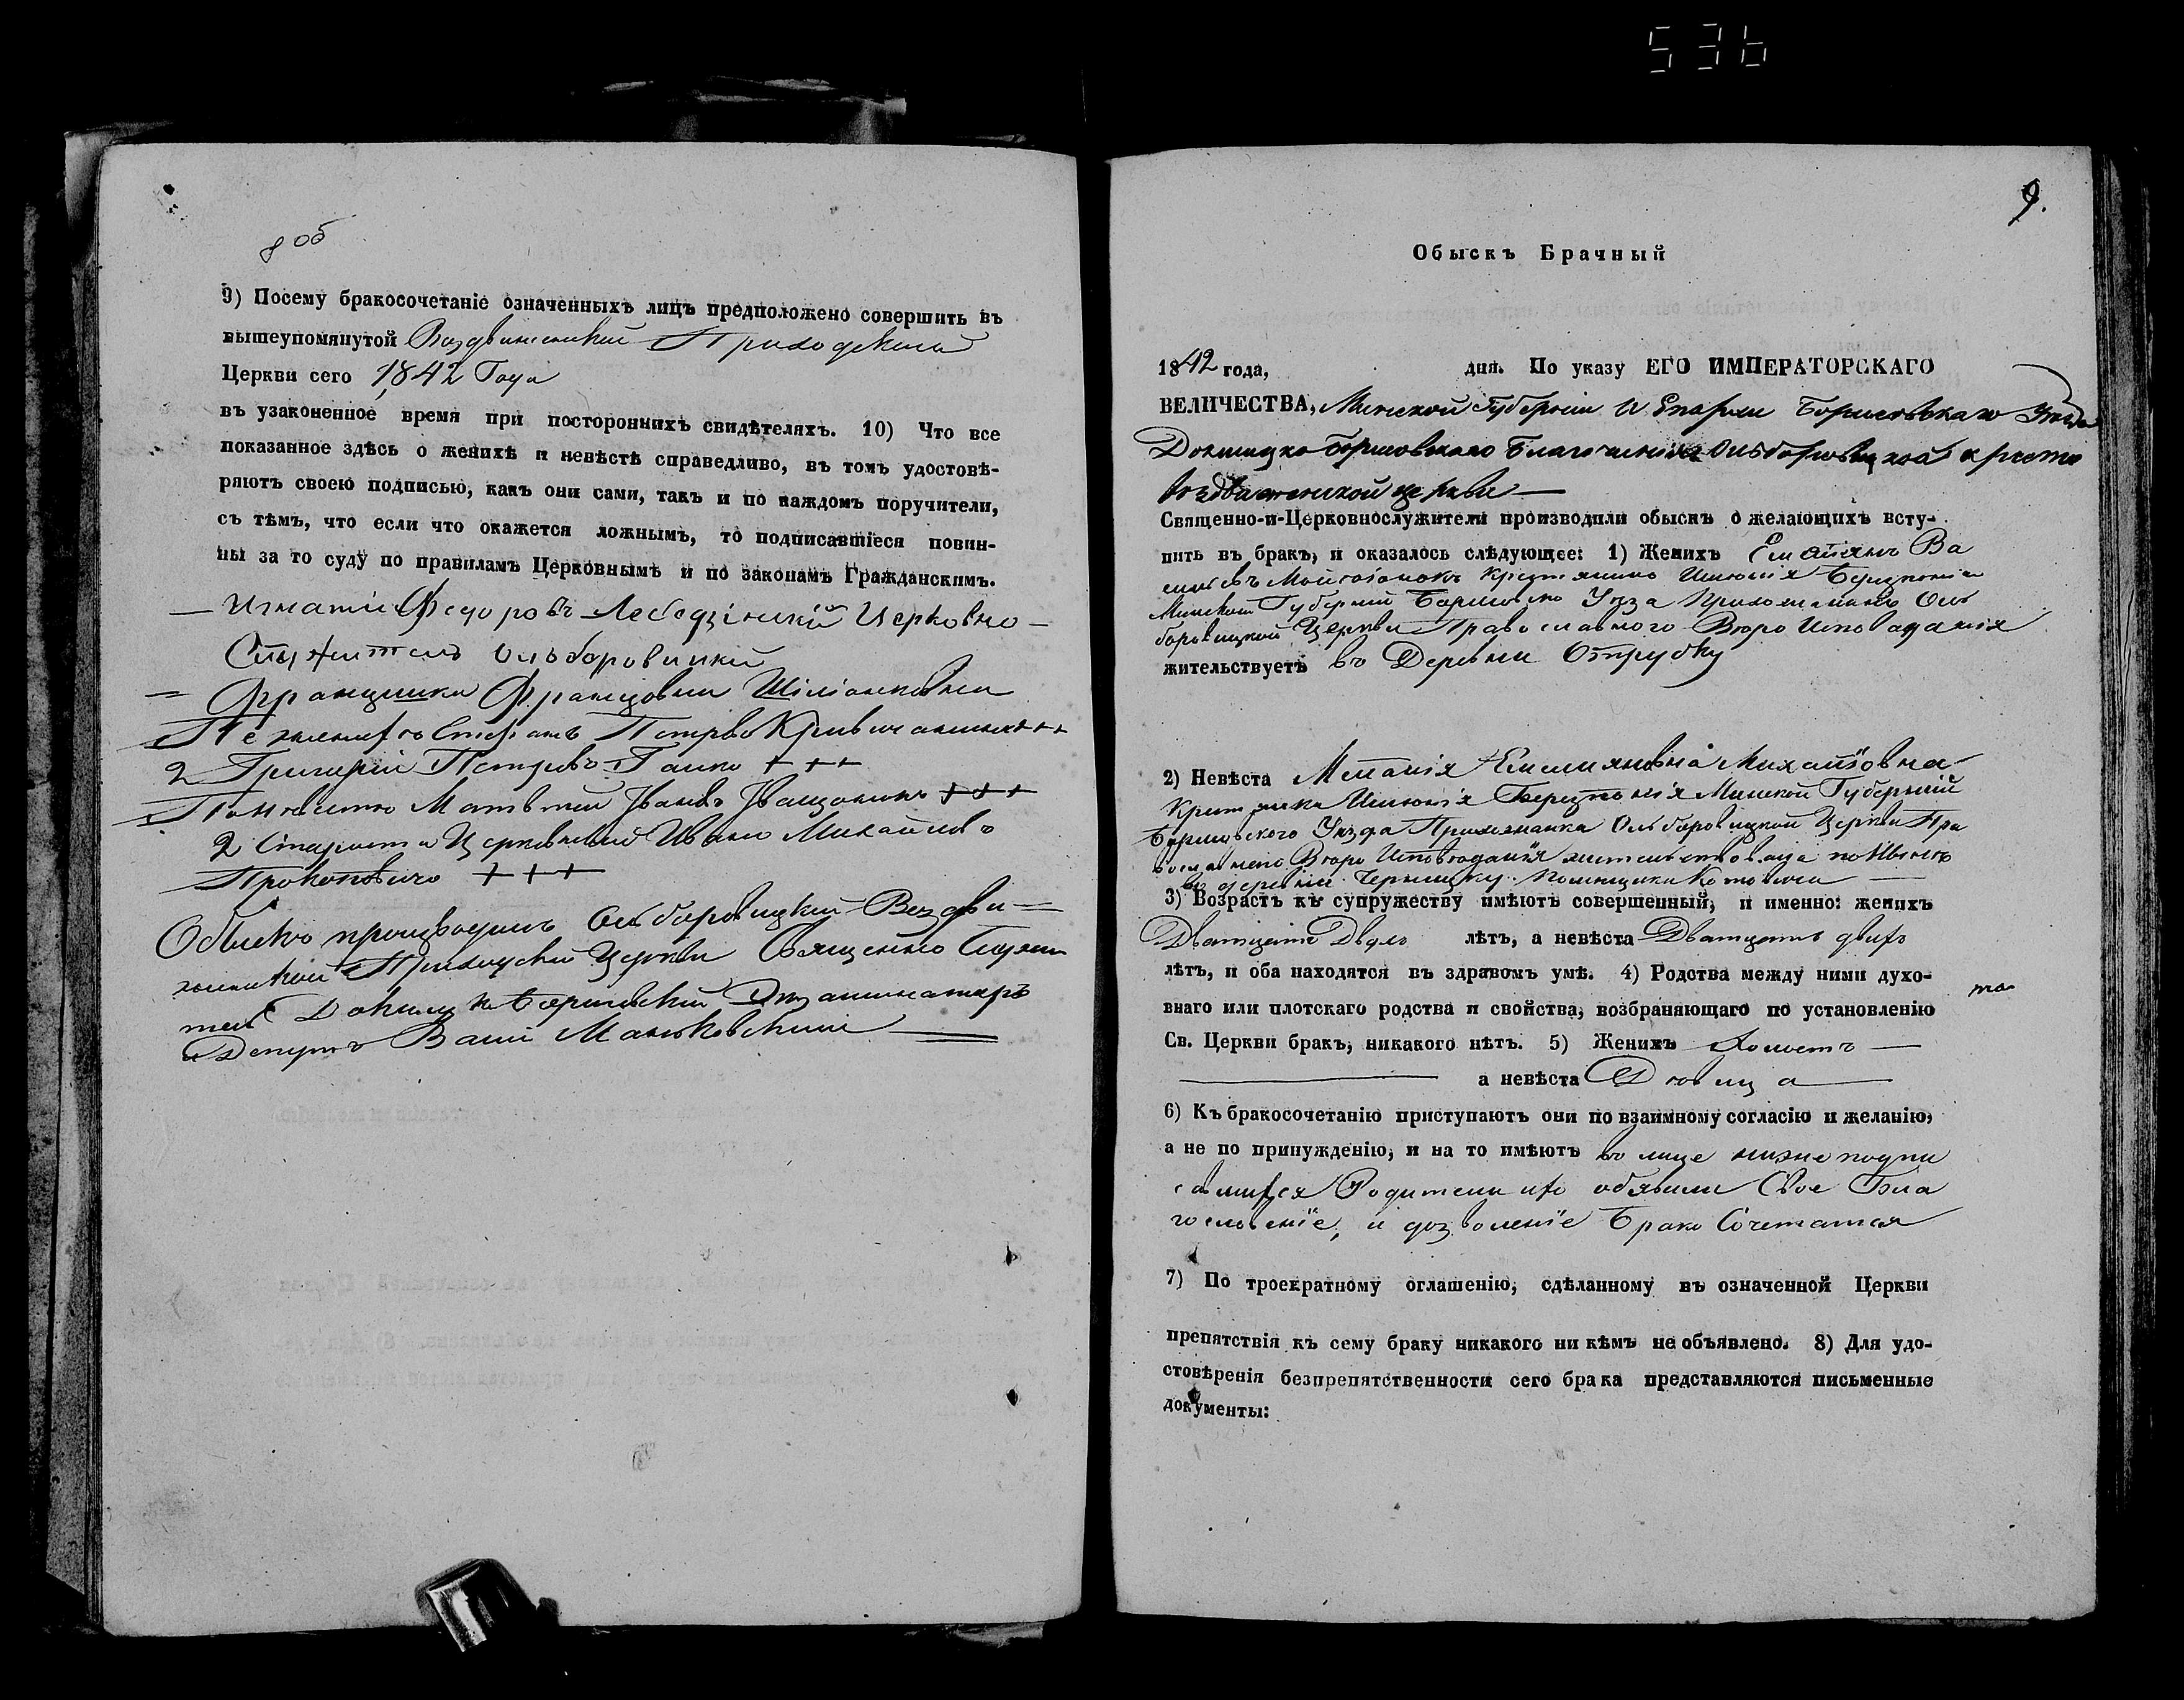 536
8 об
9) Посему бракосочетаніе означенныхъ лицъ предположено совершить въ
вышеупомянутой Воздвиженской Приходской
Церкви сего 1842 Года
въ узаконенное время при постороннихъ свидѣтеляхъ. 10) Что все
показанное здѣсь о женихѣ и невѣстѣ справедливо, въ томъ удостовѣ-
ряютъ своею подписью, какъ они сами, такъ и по каждомъ поручители,
съ тѣмъ, что если что окажется ложнымъ, то подписавшіеся повин-
ны за то суду по правиламъ Церковнымъ и по законамъ Гражданскимъ.
Игнатій Федоровъ Лебедзінскій Церковно-
Служитель
Францовни
Стефанъ Петровъ Кривичанинъ +++
2 Григорій Петровъ Ганко +++
Матвѣй Івановъ +++
2 Староста Церковный Иванъ Михайловъ
Прокоповичъ +++
Обыскъ производилъ Ольборовицкой Воздви-
женской Приходской Церкви Священникъ
Борисовскій
и Депутъ Маньковскій
9.
Обыскъ Брачный
1842 года, дня. По указу ЕГО ИМПЕРАТОРСКАГО
ВЕЛИЧЕСТВА, Минской Губерніи И Епархіи Борисовскаго Уезда
Докшицко Борисовского Благочинія Ольборовицкой кресто
воздвиженской церкви
Священно-и-Церковнослужители производили обыскъ о желающихъ всту-
пить въ бракъ, и оказалось слѣдующее: 1) Женихъ Емельянъ Ва
сильевъ крестьянинъ Имѣнія
Минской Губерніи Уезда Прихожанинъ Оль
боровицкой Церкви Православного Исповаданія
жительствуетъ въ Деревни Отрубку
2) Невѣста Меланія Емельяновна Михайловна
крестьянка Имѣнія Минской Губерній
Борисовского Уезда Прихожанка Ольборовицкой Церкви Пра
Исповаданія
въ деревни помещика
3) Возрастъ къ супружеству имѣютъ совершенный, и именно: женихъ
Дватцать Двухъ лѣтъ, а невѣста Дватцать двухъ
лѣтъ, и оба находятся въ здравомъ умѣ. 4) Родства между ними духо-
внаго или плотскаго родства и свойства, возбраняющаго по установленію
Св. Церкви бракъ, никакого нѣтъ. 5) Женихъ Холостъ
а невѣста Девица
6) Къ бракосочетанію приступаютъ они по взаимному согласію и желанію,
а не по принужденію, и на то имѣютъ въ лице ниже подпи
савшихся Родители ихъ объявили Свое Бла
гословеніе, и дозволеніе Брако Сочетатся
7) По троекратному оглашенію, сдѣланному въ означенной Церкви
препятствія къ сему браку никакого ни кѣмъ не объявлено. 8) Для удо-
стовѣренія безпрепятственности сего брака представляются письменные
документы: